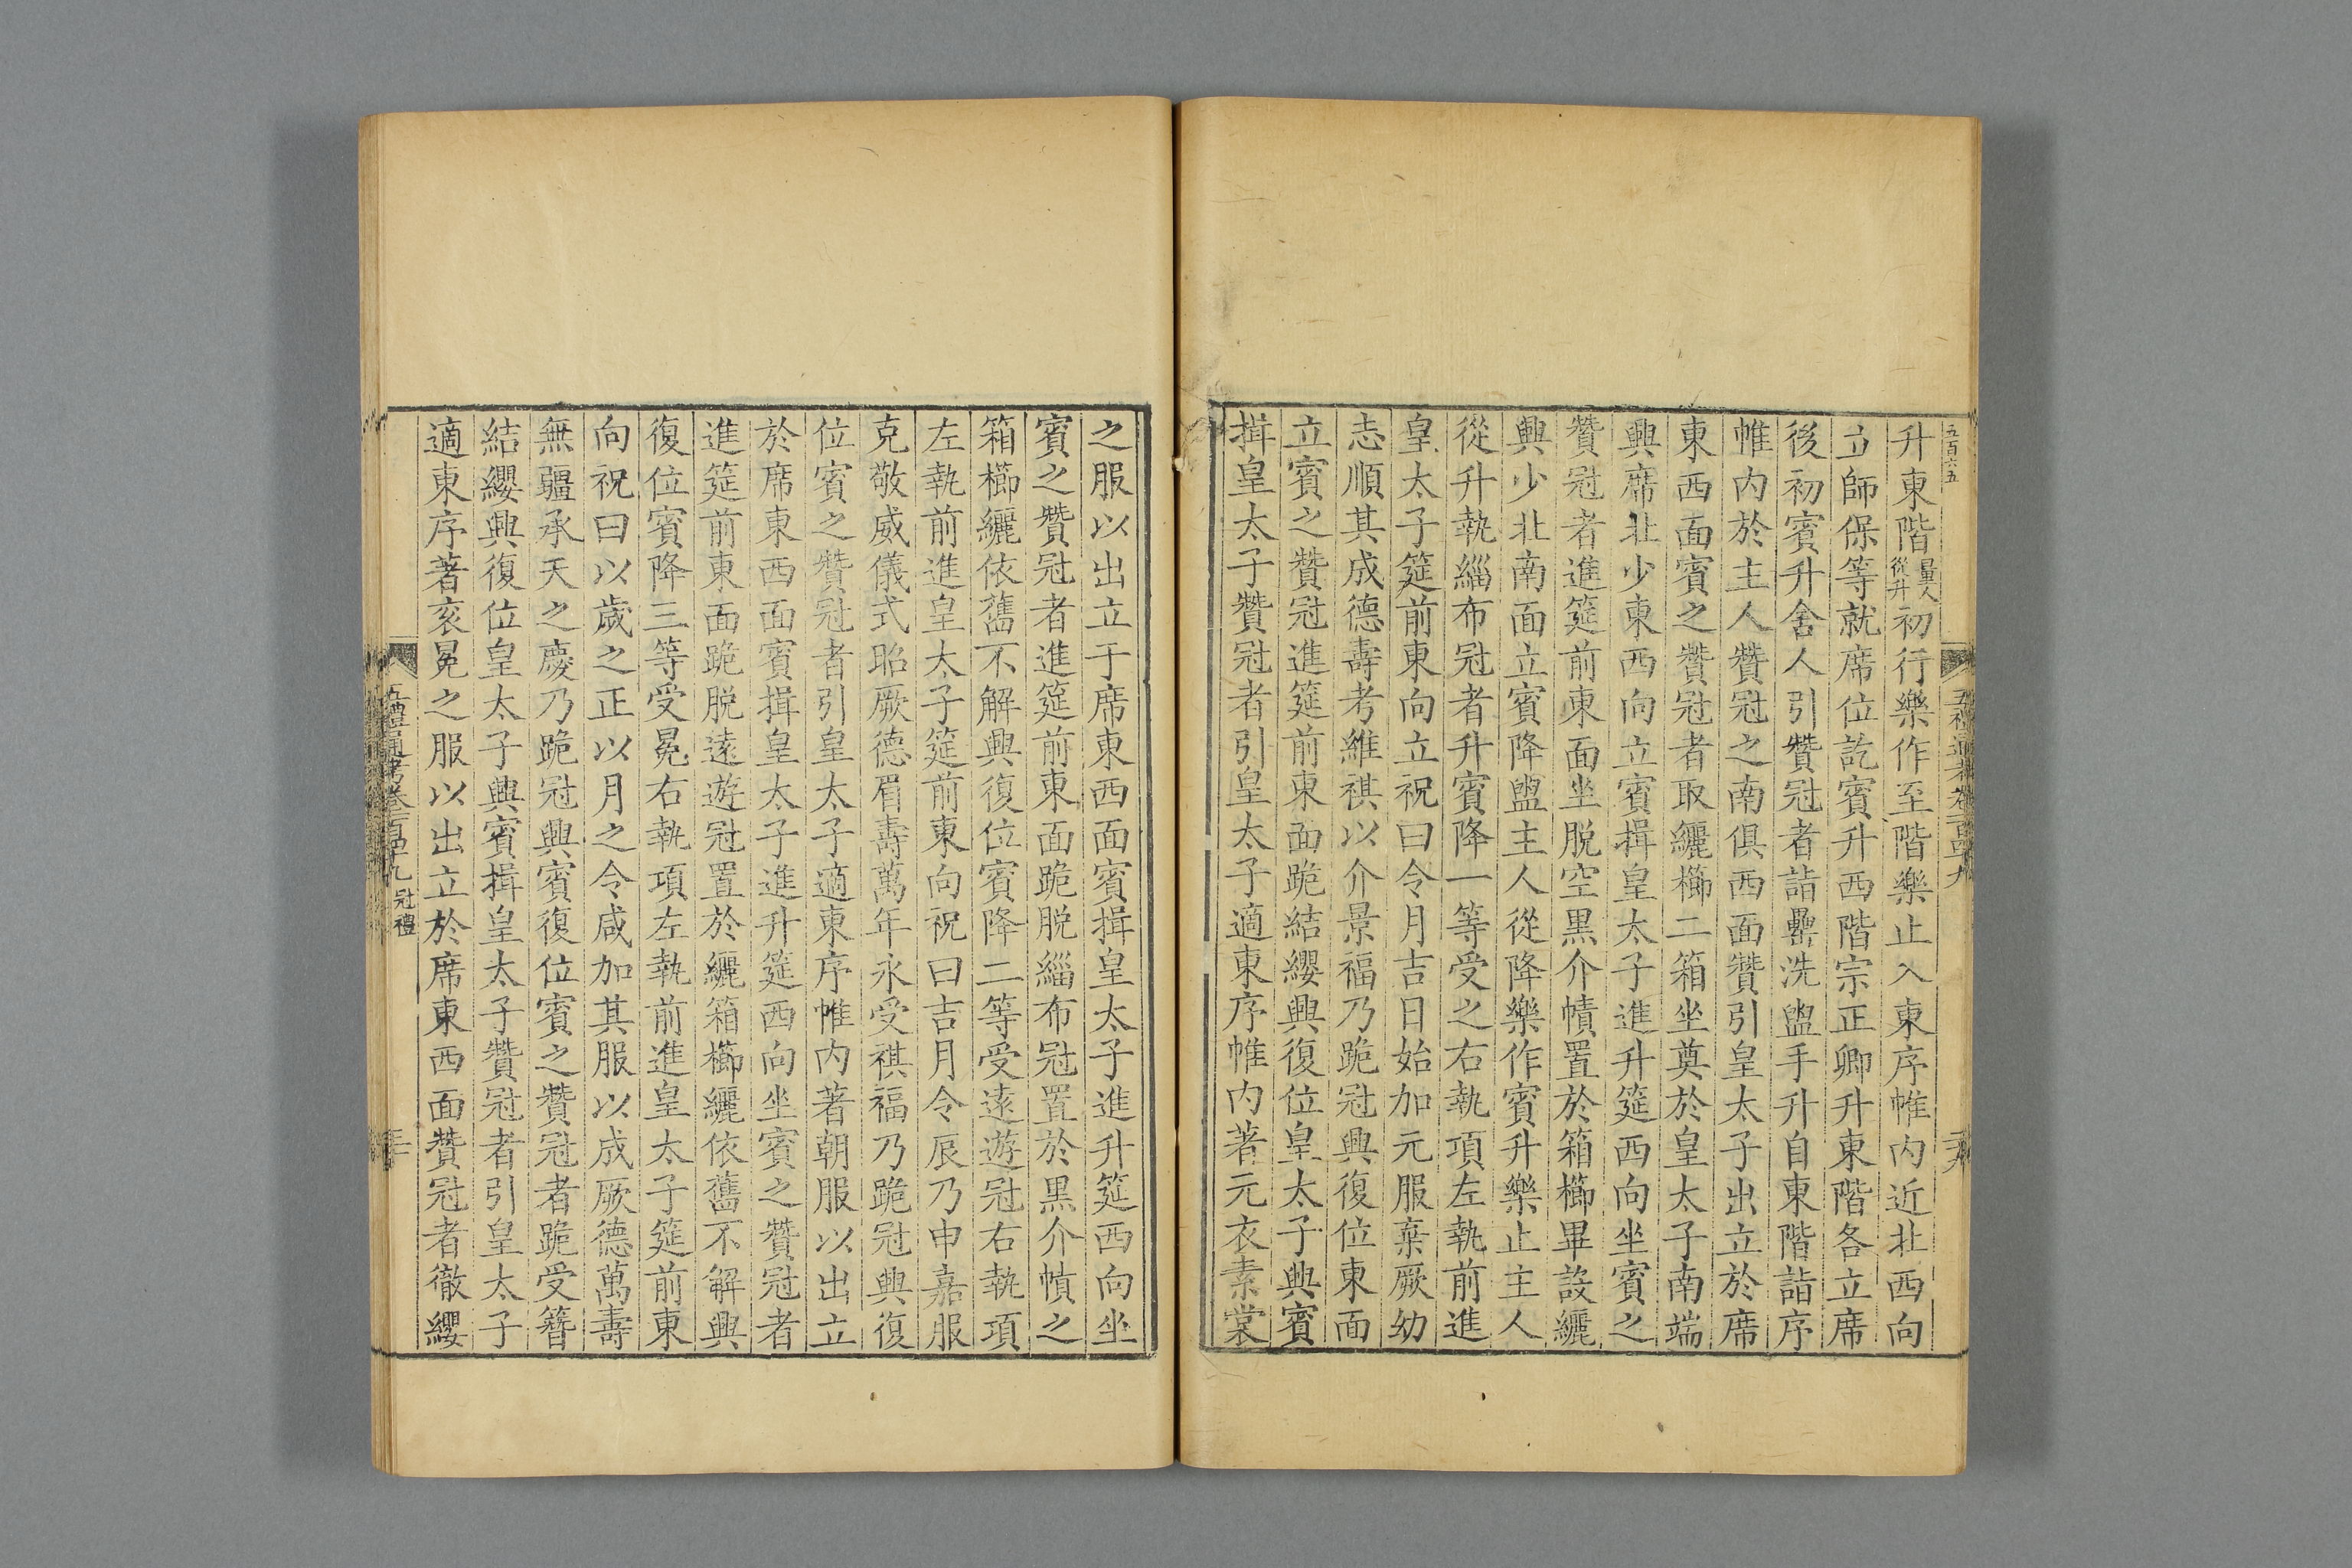 五百六五
升東階量人從升初行樂作至階樂止入東序帷內近北西向
立師保等就席位訖賓升西階宗正卿升東階各立席
後初賓升舍人引贊冠者詣罍洗盥手升自東階詣序
帷內於主人贊冠之南俱西面贊引皇太子出立於席
東西面賓之贊冠者取纚櫛二箱坐奠於皇太子南端
興席北少東西向立賓揖皇太子進升筵西向坐賓之
贊冠者進筵前東面坐脫空黑介幘置於箱櫛畢設纚
興少北南面立賓降盥主人從降樂作賓升樂止主人
從升執緇布冠者升賓降一等受之右執項左執前進
皇太子筵前東向立祝曰令月吉日始加元服棄厥幼
志順其成德壽考維祺以介景福乃跪冠興復位東面
立賓之贊冠進筵前東面跪結纓興復位皇太子興賓
揖皇太子贊冠者引皇太子適東序帷內著元衣素裳
之服以出立于席東西面賓揖皇太子進升筵西向坐
賓之贊冠者進筵前東面跪脫緇布冠置於黑介幘之
箱櫛纚依舊不解興復位賓降二等受遠遊冠右執項
左執前進皇太子筵前東向祝曰吉月令辰乃申嘉服
克敬威儀式昭厥德眉壽萬年永受祺福乃跪冠興復
位賓之贊冠者引皇太子適東序帷內著朝服以出立
於席東西面賓揖皇太子進升筵西向坐賓之贊冠者
進筵前東面跪脫遠遊冠置於纚箱櫛纚依舊不解興
復位賓降三等受冕右執項左執前進皇太子筵前東
向祝曰以歲之正以月之令咸加其服以成厥德萬壽
無疆承天之慶乃跪冠興賓復位賓之贊冠者跪受簪
結纓興復位皇太子興賓揖皇太子贊冠者引皇太子
適東序著袞冕之服以出立於席東西面贊冠者徹纓
五禮通考卷一百四十九 冠禮